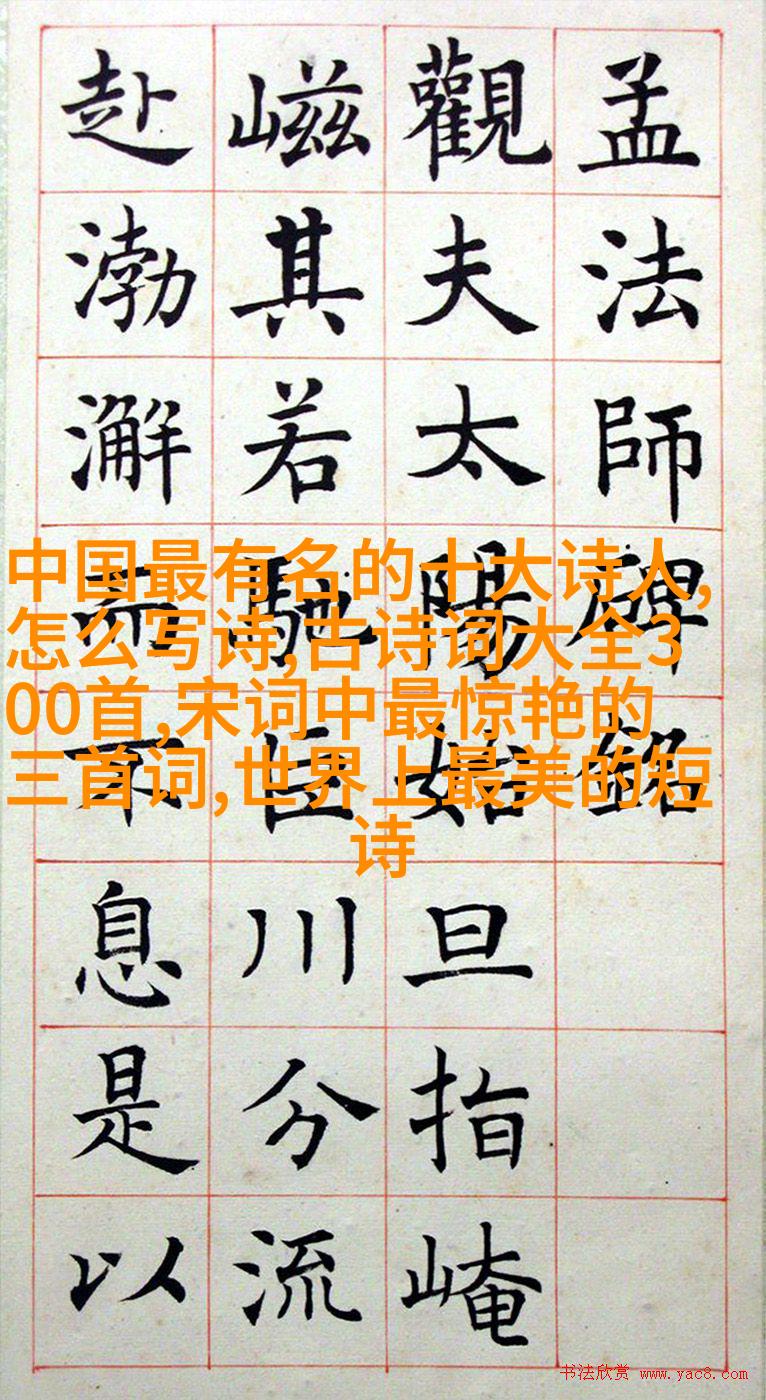 孟法師碑銘
觀夫太陽始旦指崦
嵫其若馳巨川分流
赴渤澥而不息是以
中国最有名的十大诗人,
怎么写诗,古诗词大全3
00首,宋词中最惊艳的
三首词,世界上最美的短
诗
书法欣赏 www.yac8.com